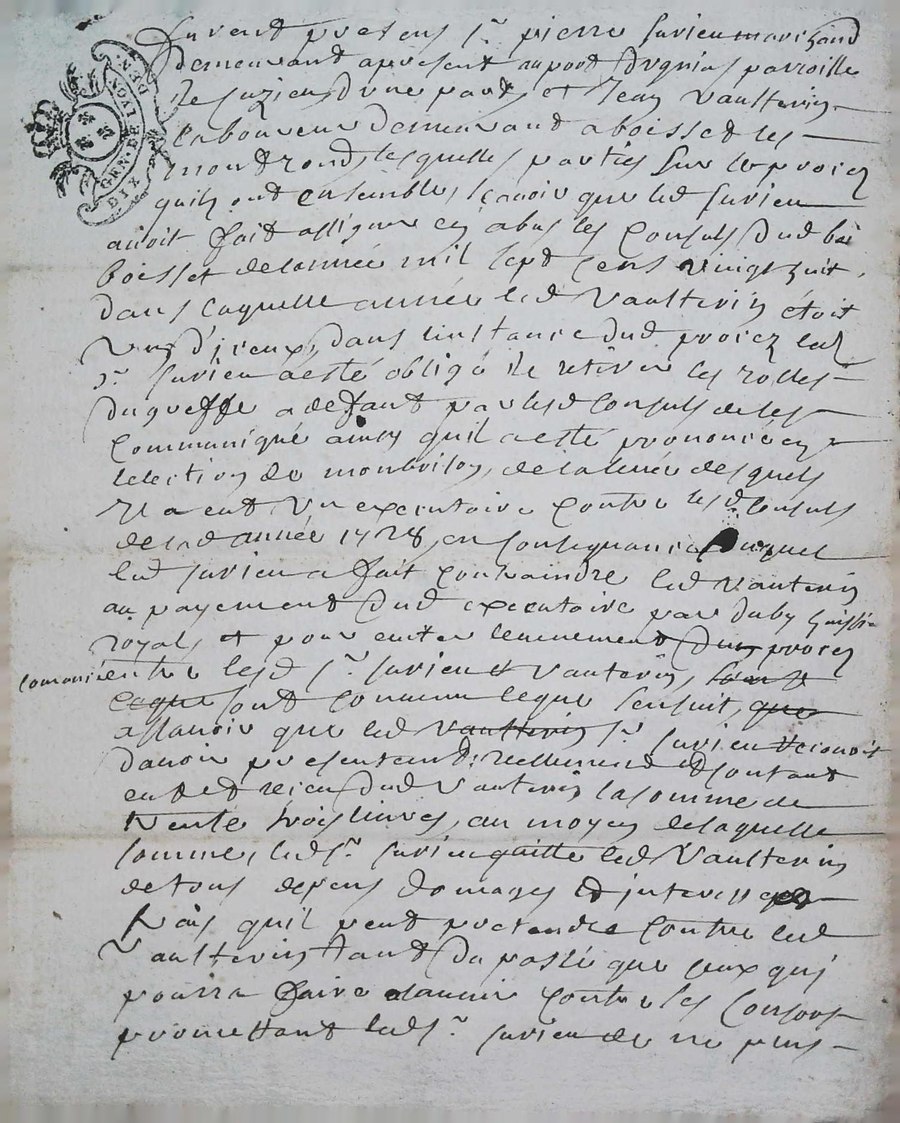 GEN. DE LYON
DIX DEN.
furent presens Sr pierre Jurieu marchand
demeurant apresent au port parroisse
dune part, et Jean Vaulterin
laboureur demeurant a boisset les
montrond, lesquelles parties sur le procez
quils ont ensemble, scavoir que led Jurieu
avoit fait assigner en abus les Consuls dud
boisset de lannée mil sept cens vingt huit,
dans laquelle année led Vaulterin étoit
Un diceux, dans linstance dud procez led
Sr Jurieu a esté obligé de retirer les rolles
du greffe a deffaut par lesd Consuls de les
Communiqué ainsy quil a esté prononcé en
lelection de montbrison, de la levée desquels
Il a eut Un executoire contre lesd Consuls
de lad année 1728, en Consequance duquel
led Jurieu a fait Contraindre led Vauterin
au payement dud executoire par duby huissier
royal, et pour eviter levenement du procez
entre lesd Sr Jurieu et Vauterin,
ont convenu ce que sensuit, que
assavoir que led Vaulterin Sr Jurieu
davoir presentement reellement et Contant
eut et receu dud Vauterin la somme de
trente trois livres, au moyen de laquelle
somme, led Sr Jurieu quitte led Vaulterin
de tous depens domages et interests
frais quil peut pretendre Contre led
Vaulterin tant du passé que ceux quil
pourra faire alavenir contre les Consors
promettant led Sr Jurieu de ne plus